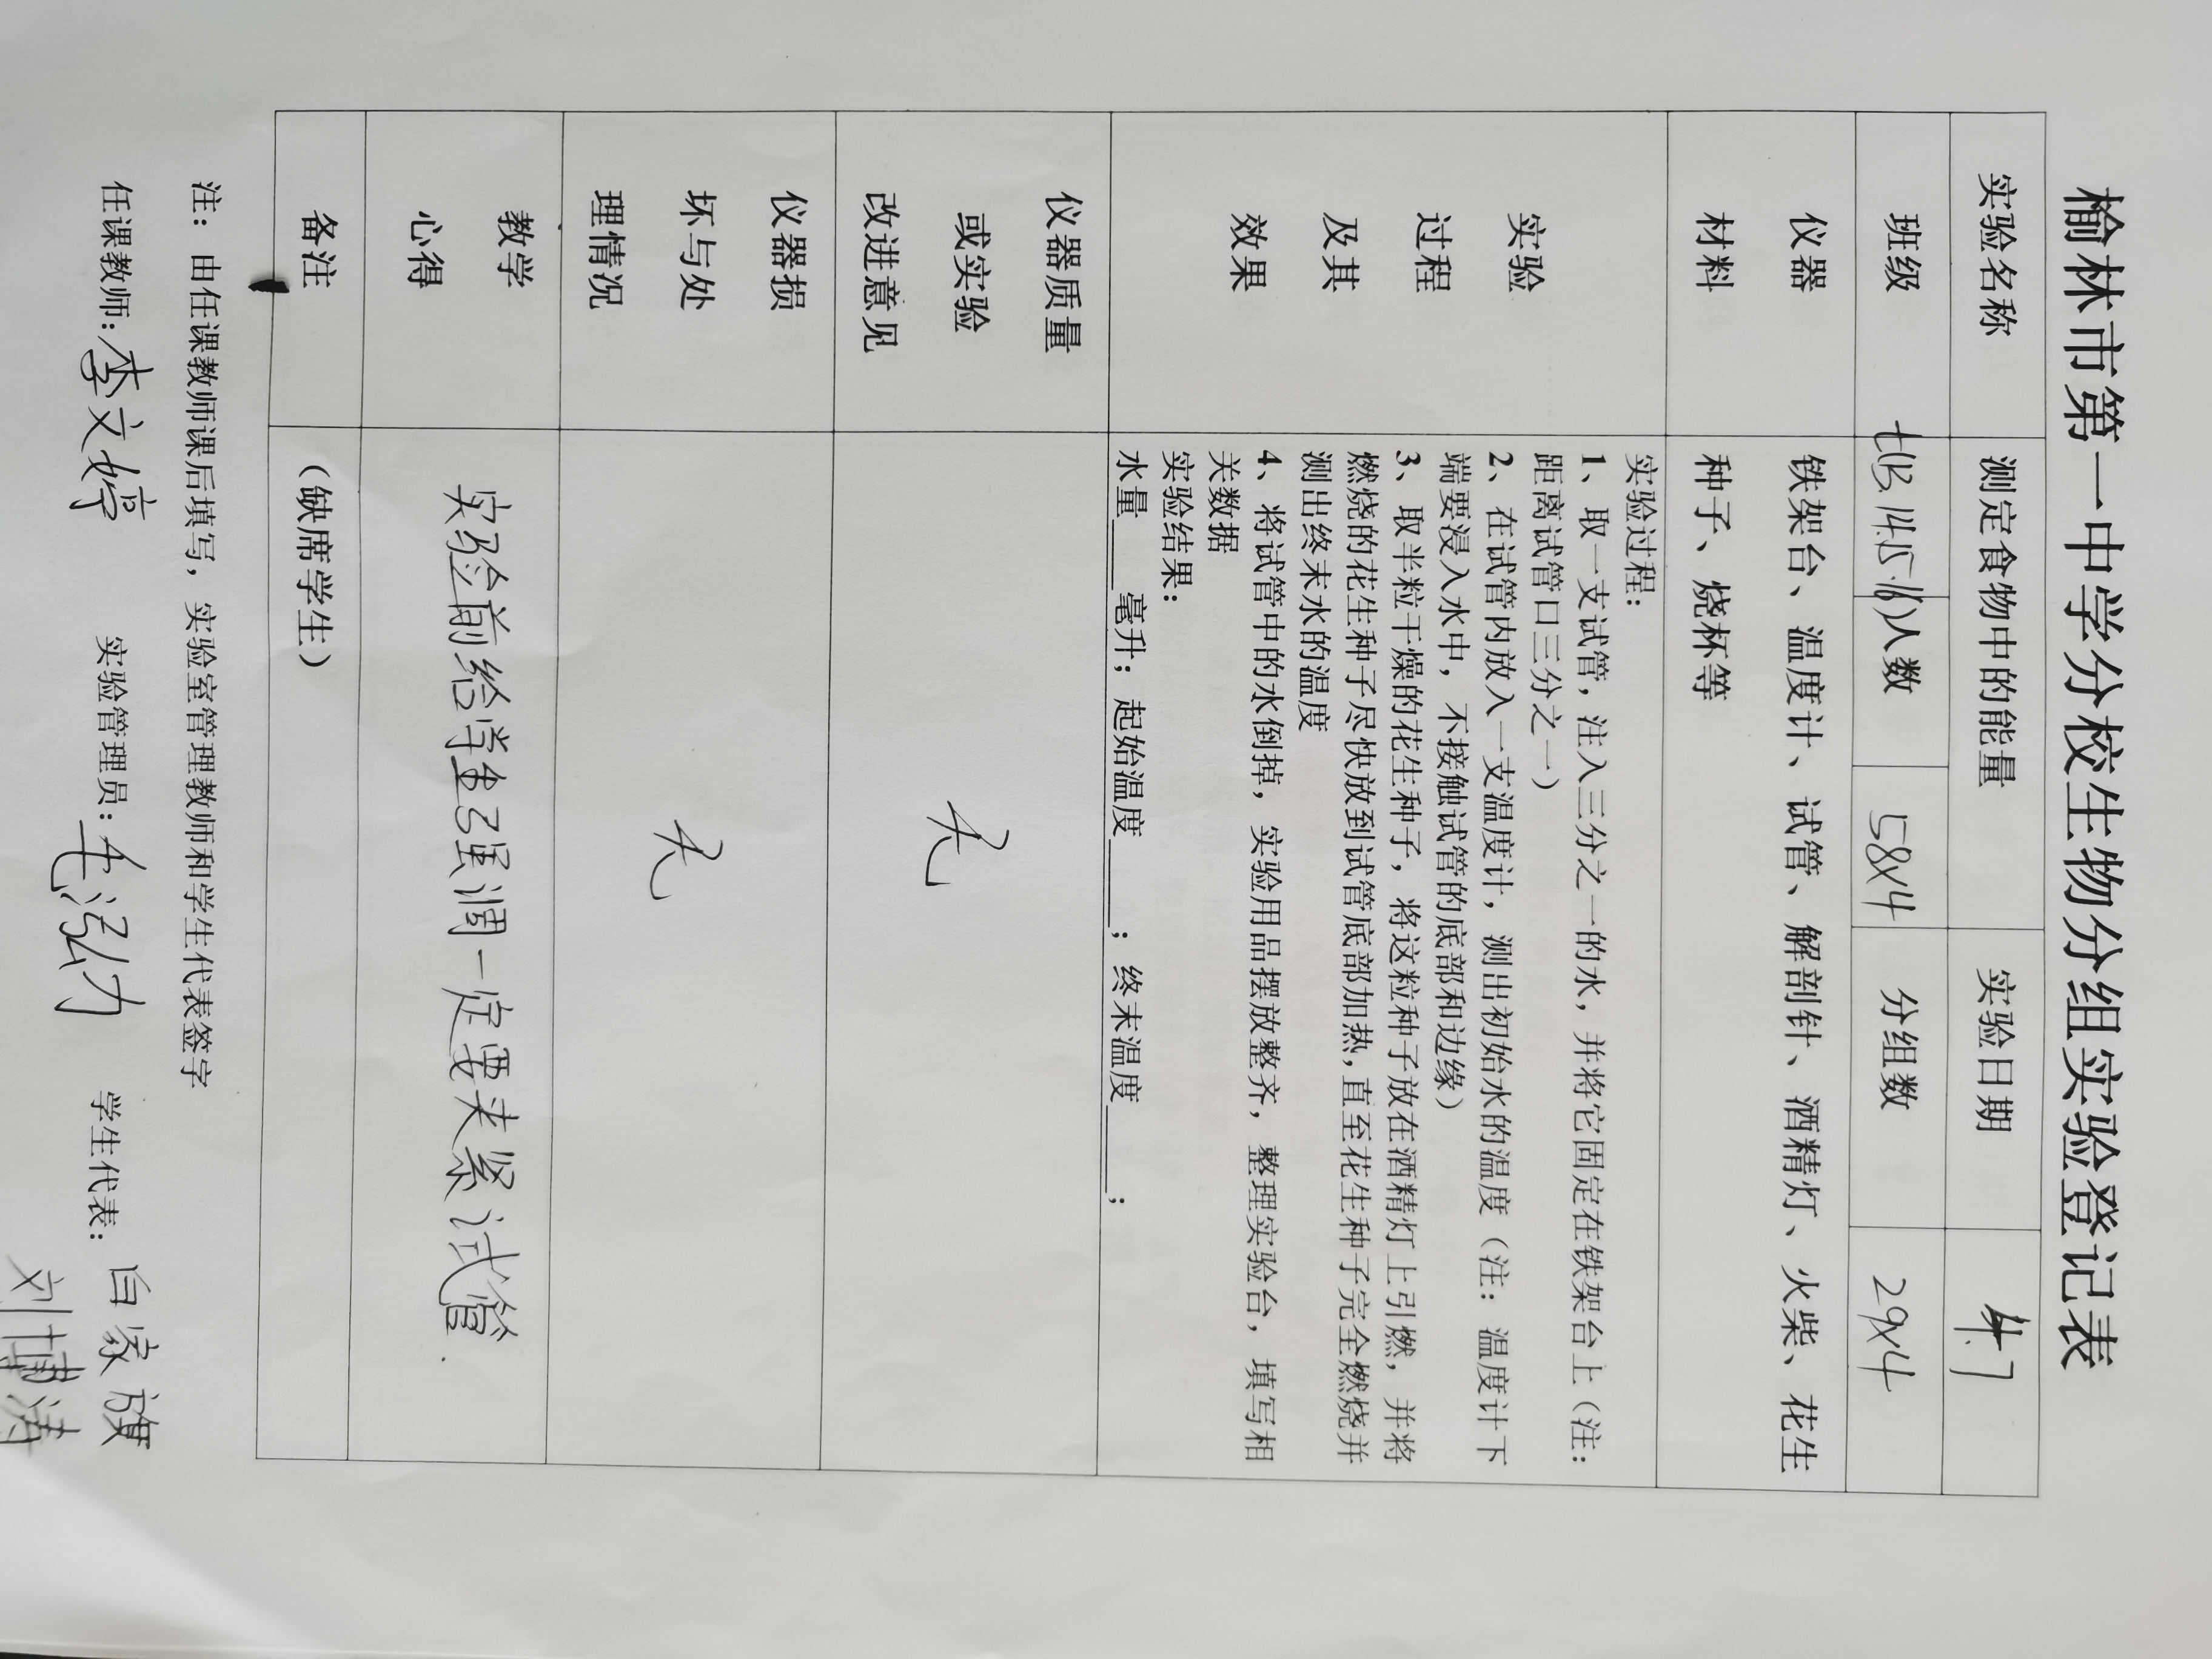 榆林市第一中学分校生物分组实验登记表
实验名称 测定食物中的能量 实验日期 4.7
班级 七(13.14.15.16) 人数 58×4 分组数 29×4
仪器 铁架台、温度计、试管、解剖针、酒精灯、火柴、花生
材料 种子、烧杯等
实验
过程
及其
效果
实验过程：
1、取一支试管，注入三分之一的水，并将它固定在铁架台上（注：
距离试管口三分之一）
2、在试管内放入一支温度计，测出初始水的温度（注：温度计下
端要浸入水中，不接触试管的底部和边缘）
3、取半粒干燥的花生种子，将这粒种子放在酒精灯上引燃，并将
燃烧的花生种子尽快放到试管底部加热，直至花生种子完全燃烧并
测出终末水的温度
4、将试管中的水倒掉，实验用品摆放整齐，整理实验台，填写相
关数据
实验结果：
水量____毫升；起始温度______；终末温度______；
仪器质量
或实验
改进意见
无
仪器损
坏与处
理情况
无
教学
心得
实验前给学生强调一定要夹紧试管.
备注 （缺席学生）
注：由任课教师课后填写，实验室管理教师和学生代表签字
任课教师：李文婷 实验管理员： 学生代表：白家旗
刘博涛